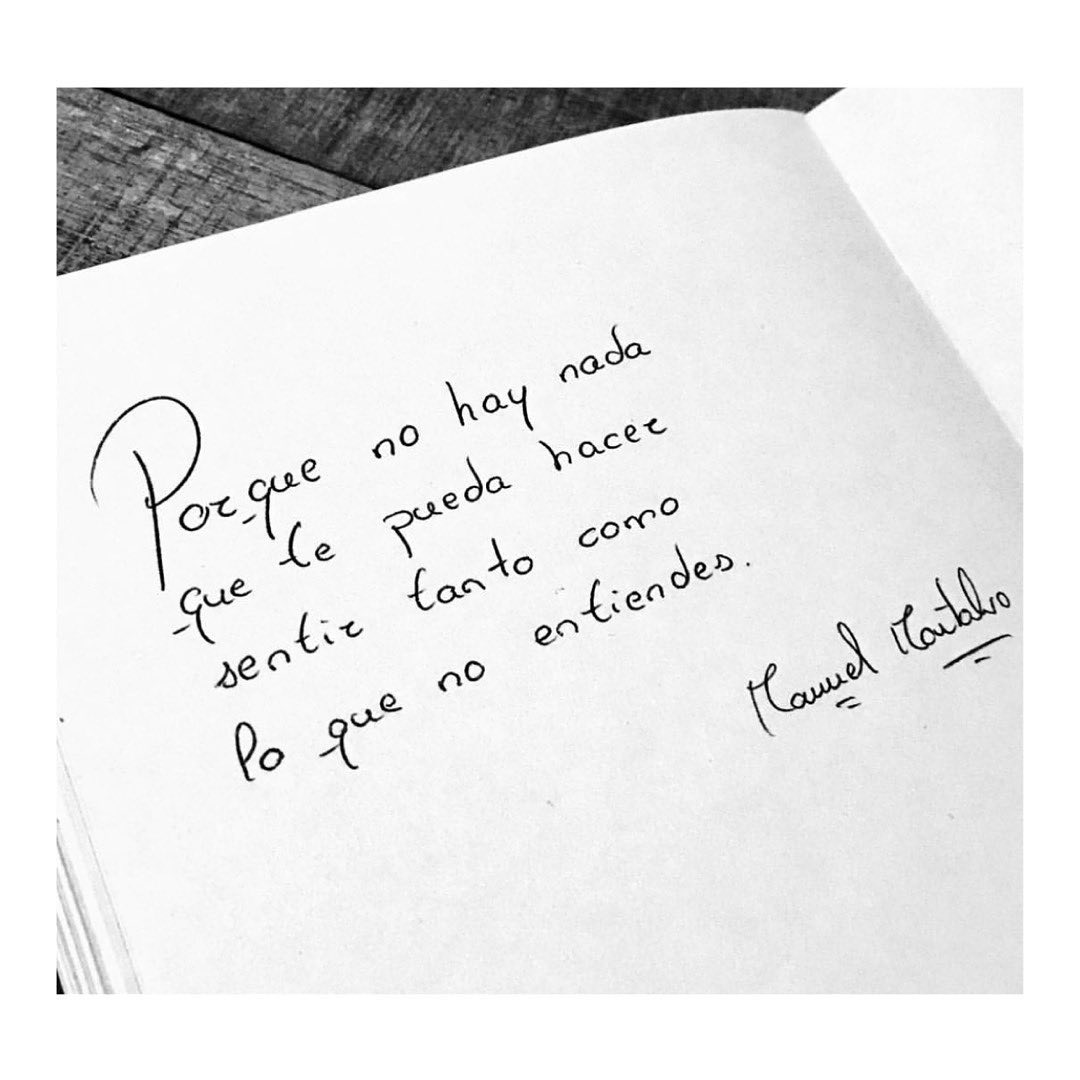 Porque no hay nada
que te pueda hacer
sentir tanto como
lo que no entiendes.
Manuel Montalvo